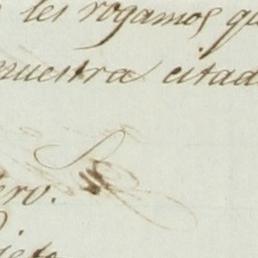 les rogamos qu
muestra citad
ero.